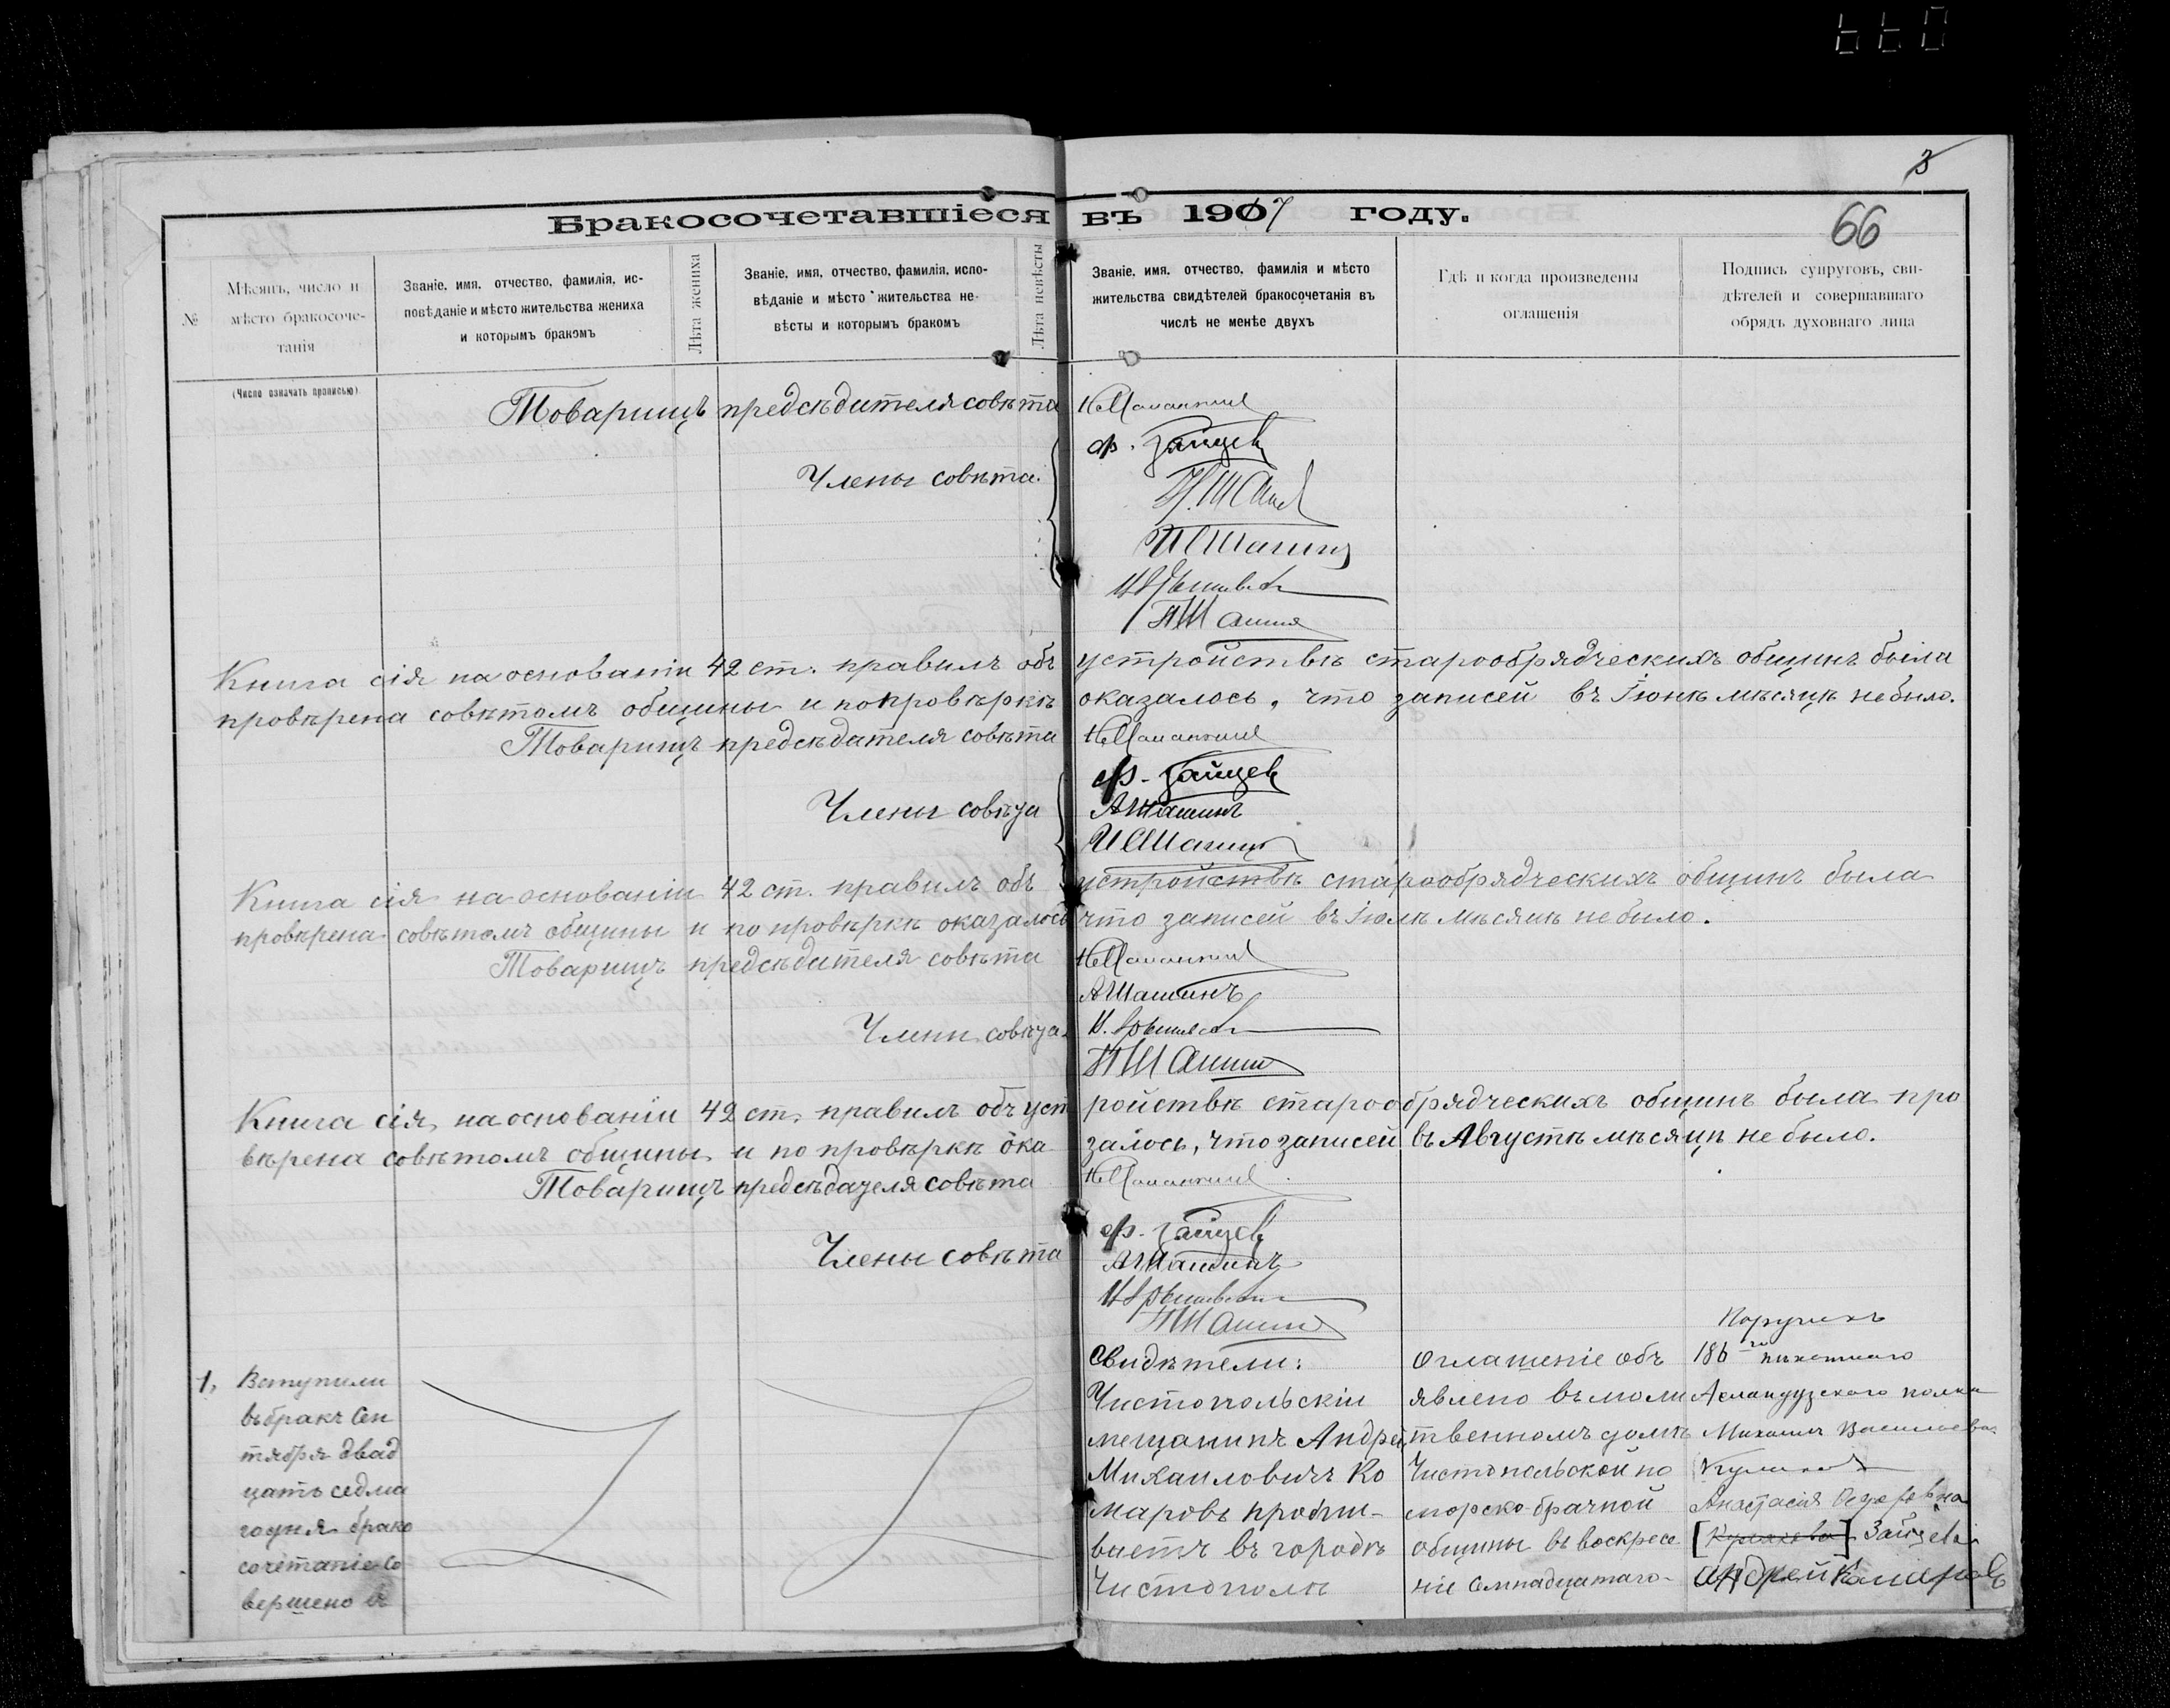 3
Бракосочетавшіеся въ 1907 году.
66
№
Мѣсяцъ, число и мѣсто бракосоче-
танія
Званіе, имя, отчество, фамилія, ис-
повѣданіе и мѣсто жительства жениха
и которымъ бракомъ
Лѣта жениха
Званіе, имя, отчество, фамилія, испо-
вѣданіе и мѣсто жительства не-
вѣсты и которымъ бракомъ
Лѣта невѣсты
Званіе, имя, отчество, фамилія и мѣсто
жительства свидѣтелей бракосочетанія въ
числѣ не менѣе двухъ
Гдѣ и когда произведены
оглашенія
Подпись супруговъ, сви-
дѣтелей и совершавшаго
обрядъ духовнаго лица
(Число означать прописью)
Товарищъ предсѣдителя совѣта
Ф. Зайцев
Члены совѣта.
П Шашин
Книга сія на основаніи 42 ст. правилъ объ устройствѣ старообрядческихъ общинъ была
провѣрена совѣтомъ общины и по провѣркѣ оказалось, что записей въ Іюнѣ мѣсяцѣ не было.
Товарищъ предсѣдателя совѣта
Ф. Зайцев
Члены совѣта
А Шашинъ
Книга сія на основаніи 42 ст. правилъ объ устройствѣ старообрядческихъ общинъ была
провѣрена совѣтомъ общины и по провѣркѣ оказалось что записей въ Іюлѣ мѣсяцѣ не было.
Товарищъ предсѣдителя совѣта
А Шашинъ
Члены совѣта.
П Шашин
Книга сія, на основаніи 42 ст. правилъ объ устройствѣ старообрядческихъ общинъ была про
вѣрена совѣтомъ общины и по провѣркѣ ока залось, что записей въ Августѣ мѣсяцѣ не было.
Товарищъ предсѣдателя совѣта
Ф. Зайцев
Члены совѣта
А Шашинъ
П Шашин
1, Вступили
въ бракъ Сен
тября двад
цать седма
го дня. брако
сочетаніе со
вершено въ
Свидѣтели:
Чистопольскій
мещанинъ Андрей
Михаиловичъ Ко
маровъ прожи-
ваетъ въ городѣ
Чистополѣ
Оглашеніе объ
явлено въ моли
твенномъ домѣ
Чистопольской по
морско-брачной
общины въ воскресе
ніе семнадцатаго
Поручикъ
186го пѣхотнаго
Асландузскаго полка
Михаилъ Васильевъ
Анастасія Федоровна
Зайцева
Андрей Комаровъ